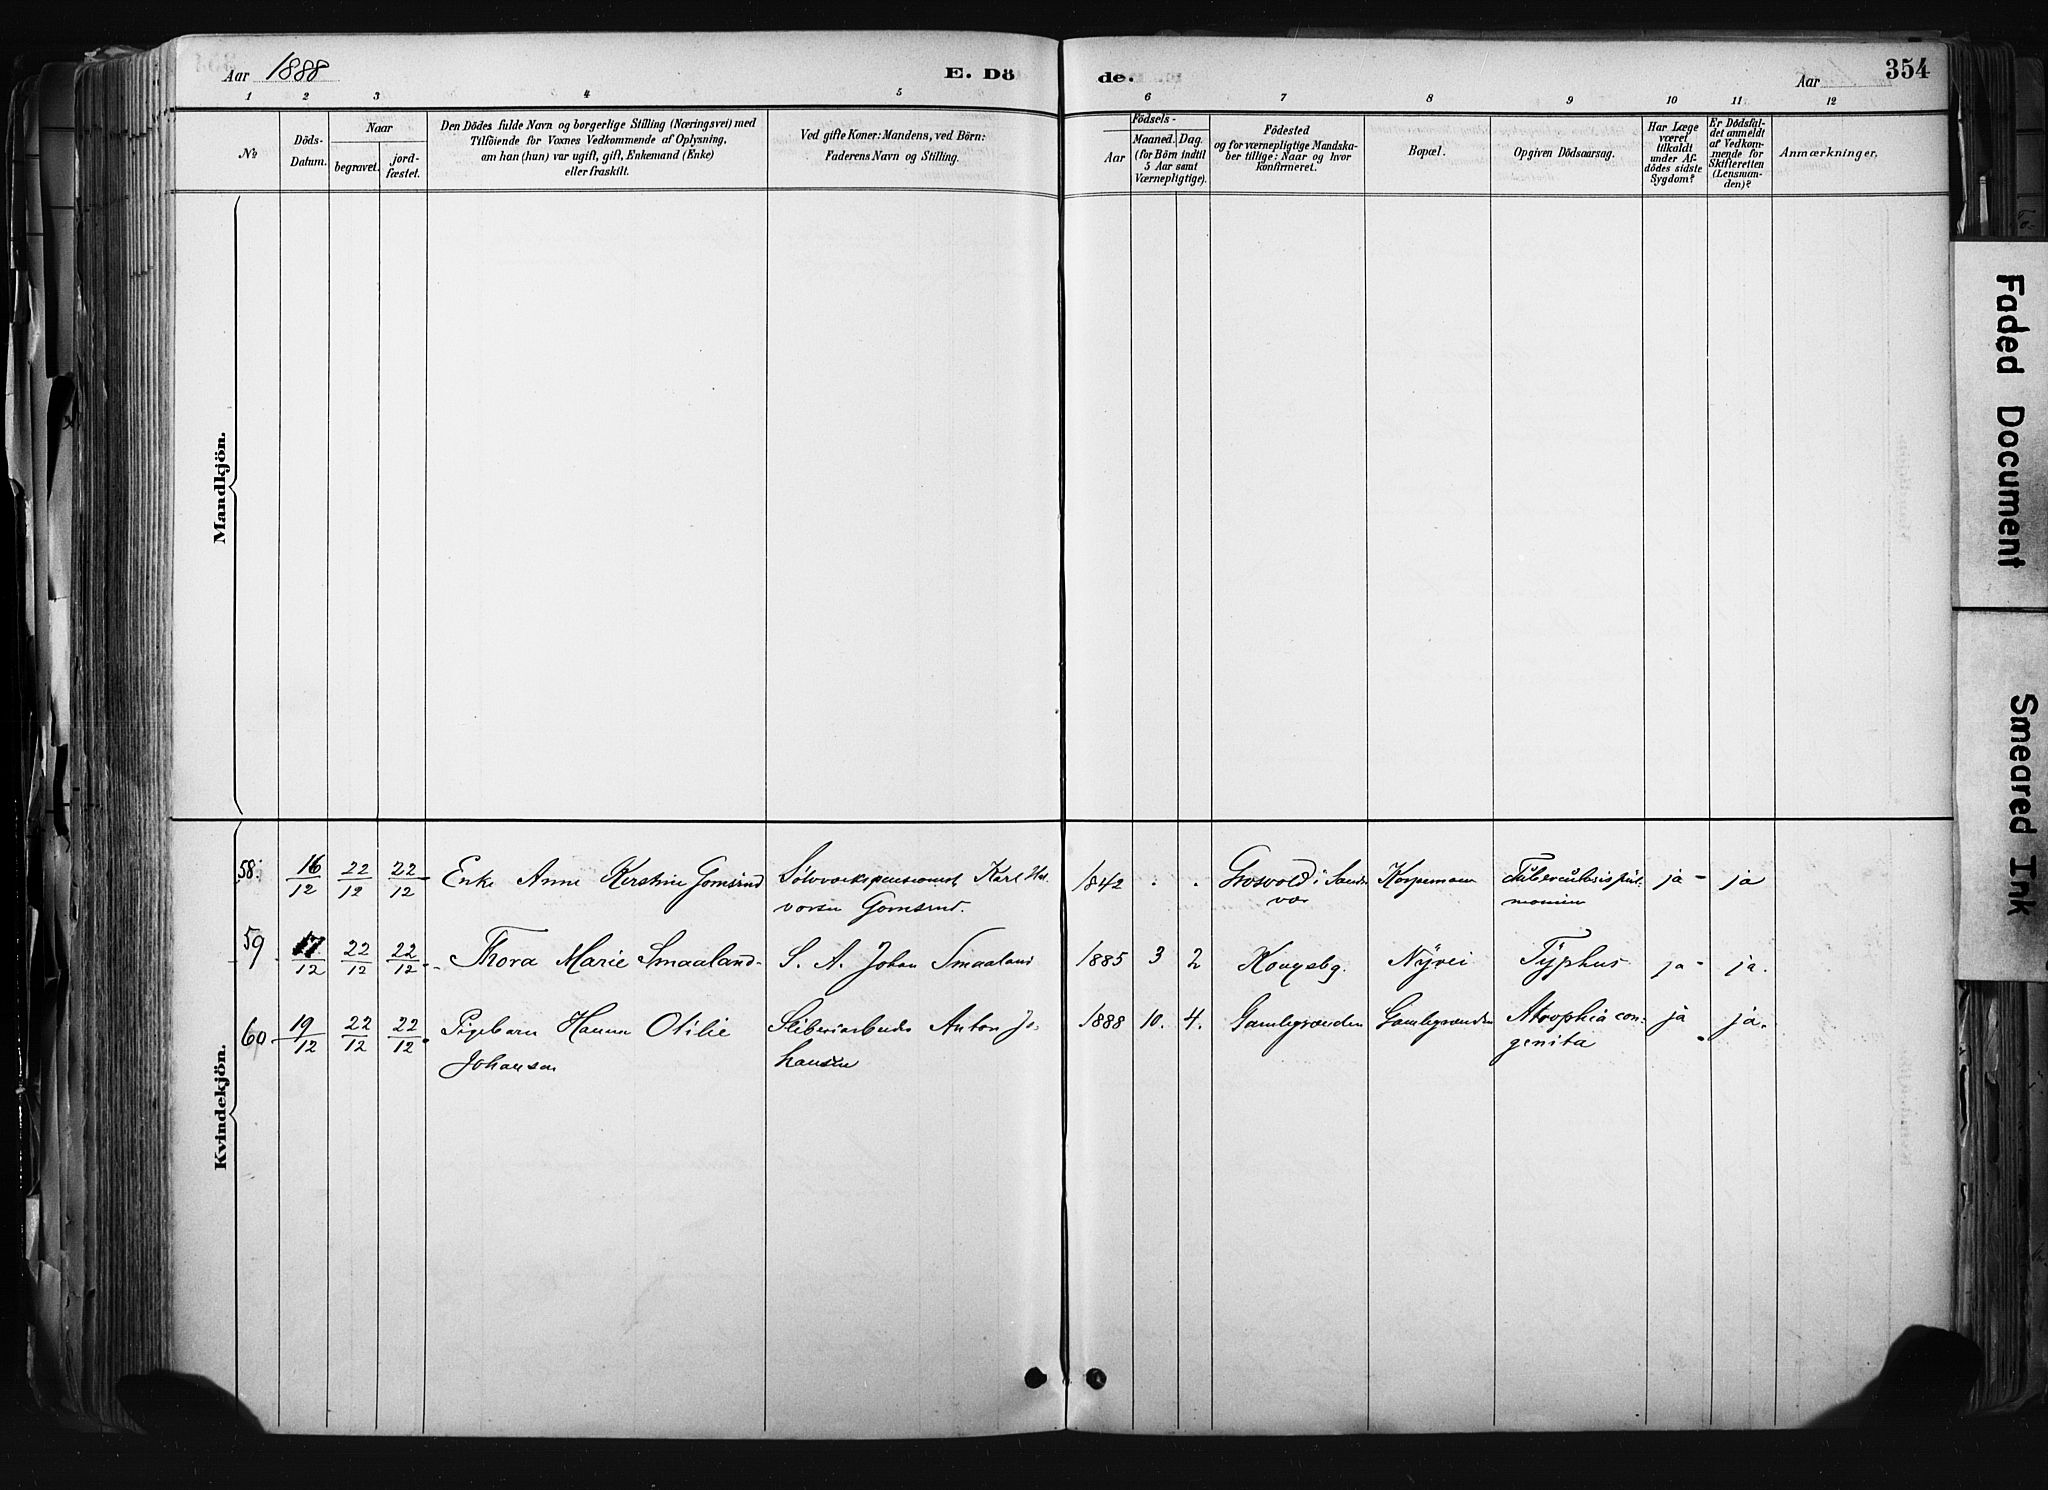 Aar 1888
E. Döde.
Aar
354
1 2 3 4 5 6 7 8 9 10 11 12
No
Döds-Datum.
Naar
begravet.
jordfæstet.
Den Dödes fulde Navn og borgerlige Stilling (Næringsvei) med
Tilföiende for Voxnes Vedkommende af Oplysning,
om han (hun) var ugift, gift, Enkemand (Enke)
eller fraskilt.
Ved gifte Koner: Mandens, ved Börn:
Faderens Navn og Stilling.
Födsels-
Aar
Maaned. Dag.
(for Börn indtil
5 Aar samt
Værnepligtige).
Födested
og for værnepligtige Mandska-
ber tillige: Naar og hvor
konfirmeret.
Bopæl.
Opgiven Dödsaarsag.
Har Læge
været
tilkaldt
under Af-
dödes sidste
Sygdom?
Er Dödsfal-
det anmeldt
af Vedkom-
mende for
Skifteretten
(Lensman-
den)?
Anmærkninger.
Mandkjön.
Kvindekjön.
58. 16/12 22/12 22/12 Enke Anne Kirstine Gomsrud Sölvværkspensionist Karl Hal- 1842 . . Grosvold i Sands- Korpemoen Tuberculosis pul- ja - ja
vorsen Gomsrud. vær monum
59 17/12 22/12 22/12 Thora Marie Smaaland S. A. Johan Smaaland 1885 3 2 Kongsbg. Nyvei Typhus ja - ja.
60 19/12 22/12 22/12 Pigebarn Hanna Otilie Sliberiarbeider Anton Jo- 1888 10. 4. Gamlegrænden Gamlegrænden Atrophia con- ja ja.
Johansen hansen genita
Faded Document
Smeared Ink